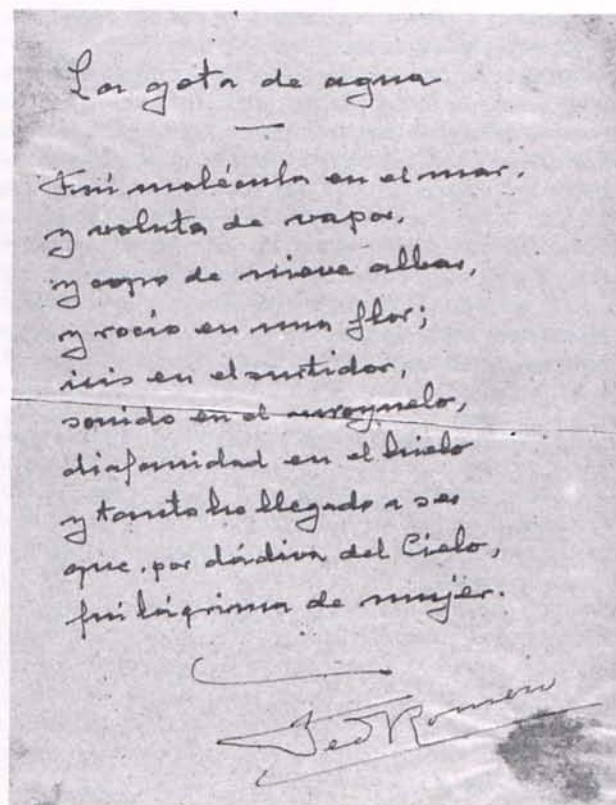 La gota de agua
Fuí molécula en el mar,
y voluta de vapor,
y copo de nieve albar,
y rocío en una flor;
iris en el surtidor,
sonido en el arroyuelo,
diafanidad en el hielo
y tanto he llegado a ser
que, por dádiva del Cielo,
fuí lágrima de mujer.
Romero